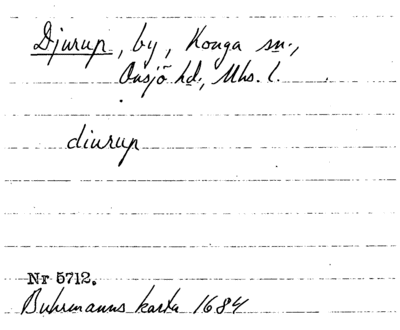 Djurup, by, Konga sn.,
Onsjö hd., Mhs. l.
diurup
Nr 5712.
Buhrmanns karta 1684